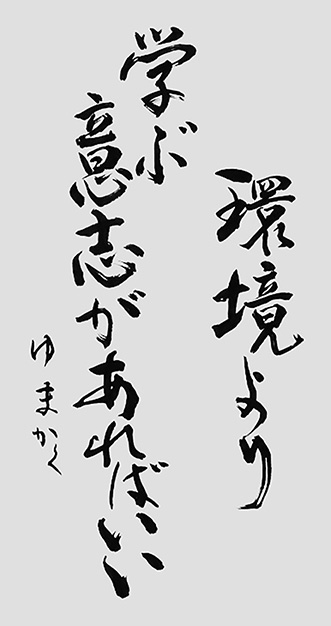 環境より
学ぶ
意志があればいい
ゆまかく